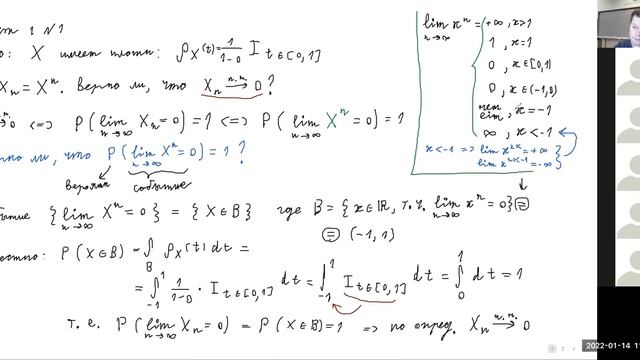 1 N1
X имеет плотн: ρ_X(t) = 1/(1-0) I_{t∈[0,1]}
X_n = X^n. Верно ли, что X_n →п.н. 0?
→ 0 <=> P(lim_{n→∞} X_n = 0) = 1 <=> P(lim_{n→∞} X^n = 0) = 1
ли, что P(lim_{n→∞} X^n = 0) = 1?
вероятн событие
{lim_{n→∞} X^n = 0} = {X∈B} где B = {x∈ℝ, т.ч. lim_{n→∞} x^n = 0} =
= (-1, 1)
P(X∈B) = ∫_B ρ_X(t) dt =
= ∫_{-1}^{1} 1/(1-0) · I_{t∈[0,1]} dt = ∫_{-1}^{1} I_{t∈[0,1]} dt = ∫_0^1 dt = 1
т.е. P(lim_{n→∞} X_n = 0) = P(X∈B) = 1 => по опред. X_n →п.н. 0
lim_{n→∞} x^n = { +∞, x>1
1, x=1
0, x∈[0,1)
0, x∈(-1,0)
нет lim, x=-1
∞, x<-1
x<-1 => lim x^{2k} = +∞ }
lim x^{2k-1} = -∞ }
2022-01-14 1